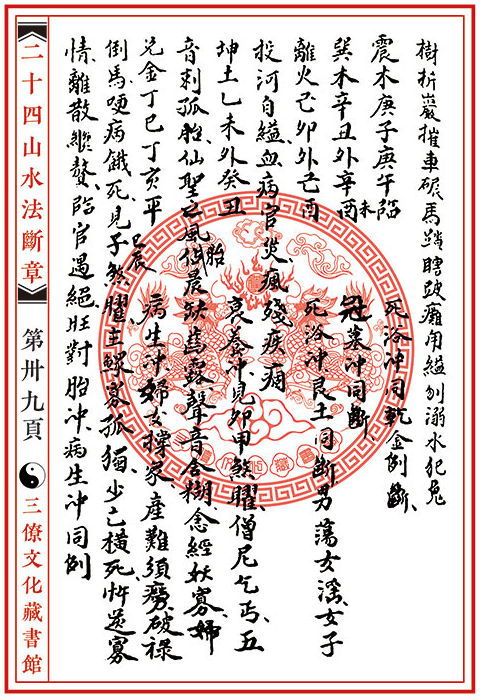 樹折巖摧車碾馬蹋瞎跛癱用縊刎溺水犯鬼
震木庚子庚午臨 死浴冲同乾金例斷
未
巽木辛丑外辛酉 冠墓冲同斷
離火己卯外己酉 死浴冲艮土同斷男蕩女淫女子
投河自縊血病官災瘋殘疾病
坤土乙未外癸丑 衰養冲見卯甲煞曜僧尼乞丐五
音刺孤 仙聖 風 晨缺 露聲音含糊念經妖寡婦
胎
兌金丁巳丁亥平 病生冲婦女撐家產難須癆破祿
倒馬哽病餓死見子煞曜主鰥寡孤獨少亡橫死忤逆寡
巳辰
情離散縱贅臨官遇絕旺對胎冲病生冲同例
二十四山水法斷章
第卅九頁
三僚文化藏書館